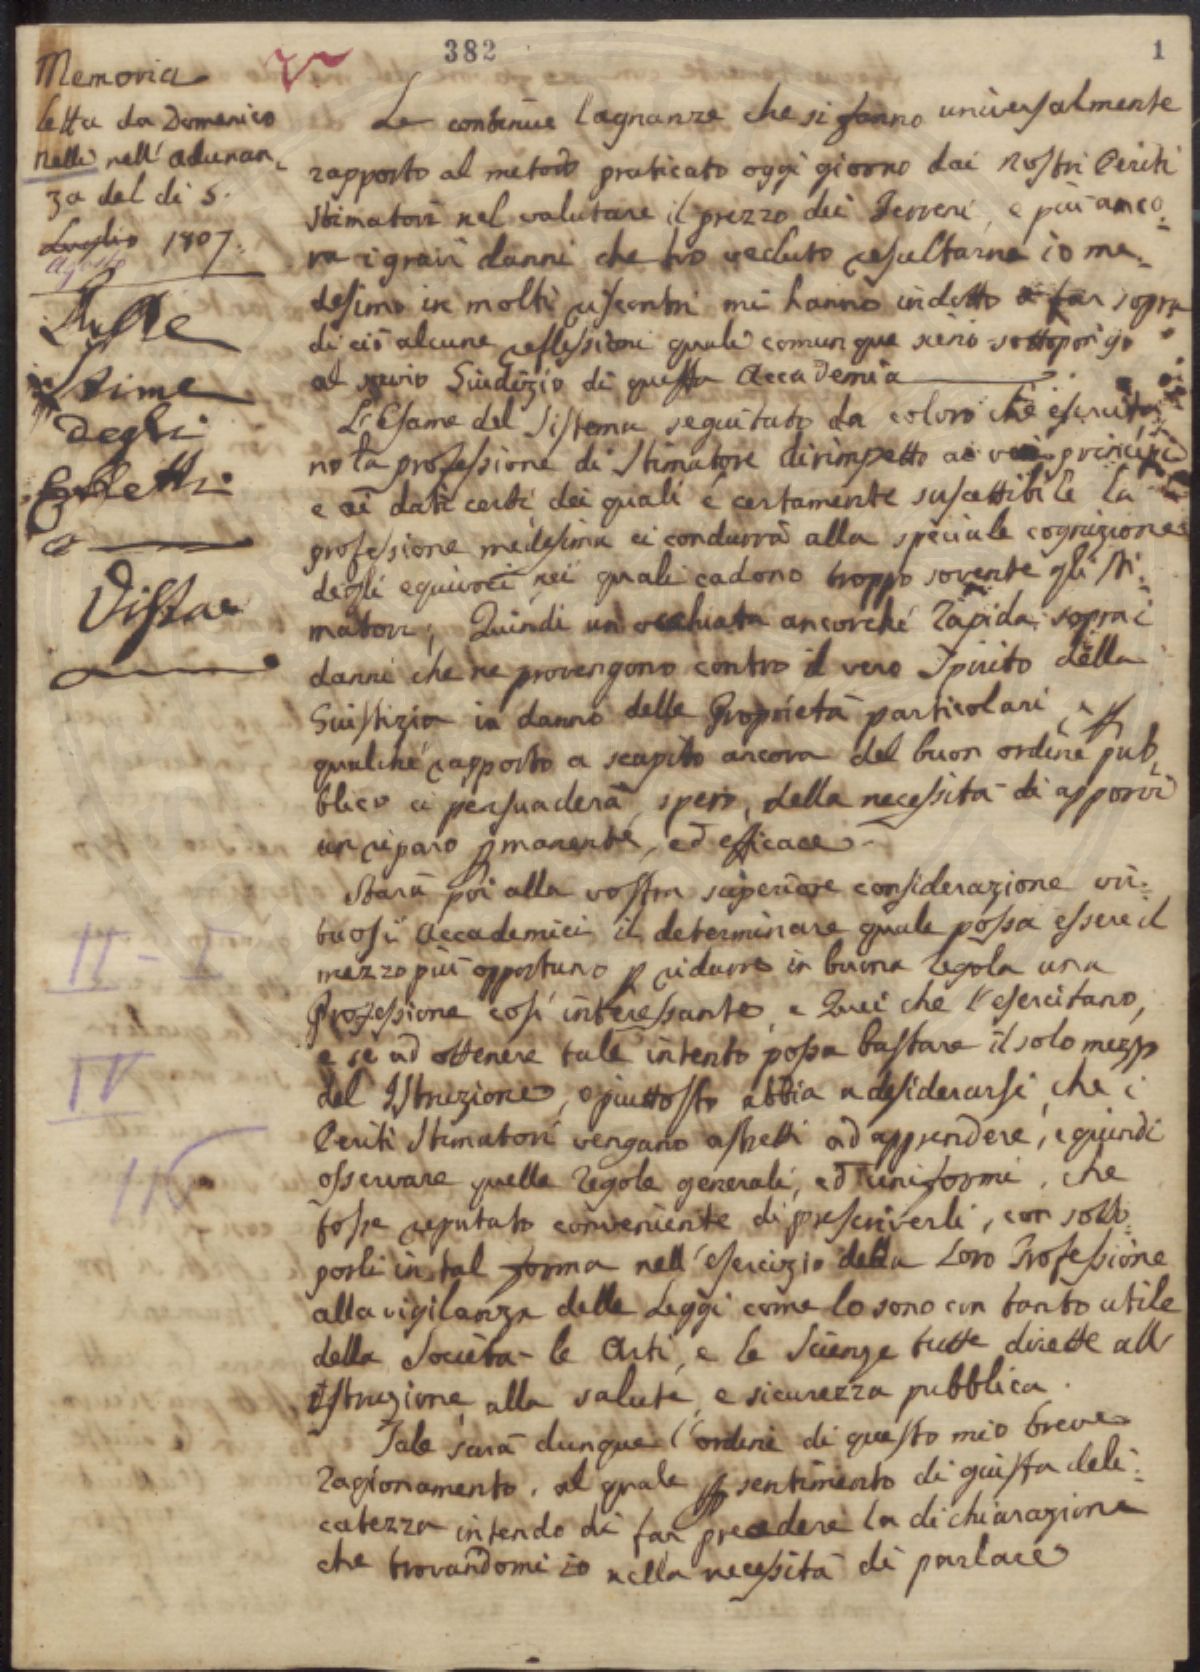 382
1
Memoria
letta da Domenico
Nelli nell' adunan-
za del dì 5.
Luglio 1807.
Agosto
Sulle
Stime
degli
Effetti
Vista
Le continue lagnanze che si fanno universalmente
rapporto al metodo praticato oggi giorno dai nostri Periti
Stimatori nel valutare il prezzo dei Terreni, e più anco=
ra i gravi danni che ho veduto resultarne io me=
desimo in molti riscontri mi hanno indotto a far sopra
di ciò alcune reflessioni quali comunque sieno sottopongo
al savio Giudizio di questa Accademia
L'Esame del Sistema seguitato da coloro che esercita=
no la professione di Stimatore dirimpetto ai veri principi
e ai dati certi dei quali è certamente suscettibile la
professione medesima ci condurrà alla speciale cognizione
degli equivoci nei quali cadono troppo sovente gli Sti=
matori; Quindi un occhiata ancorché rapida sopra i
danni che ne provengono contro il vero Spirito della
Giustizia in danno delle Proprietà particolari, e p
qualche rapporto a scapito ancora del buon ordine pub=
blico ci persuaderà, spero, della necessità di apporvi
un riparo pmanente, ed efficace.
Starà poi alla vostra superiore considerazione vir=
tuosi Accademici il determinare quale possa essere il
mezzo più opportuno p ridurre in buona regola una
Professione così interessante, e Quei che l'esercitano,
e se ad ottenere tale intento possa bastare il solo mezzo
del Istruzione, o piuttosto abbia a desiderarsi, che i
Periti Stimatori vengano astretti ad apprendere, e quindi
osservare quelle regole generali, ed uniformi, che
fosse reputato conveniente di prescriverli, con sotto=
porli in tal forma nell'esercizio della Loro Professione
alla vigilanza delle Leggi come lo sono con tanto utile
della Società le Arti, e le Scienze tutte dirette all'
Istruzione, alla salute, e sicurezza pubblica.
Tale sarà dunque l'ordine di questo mio breve
ragionamento, al quale p sentimento di giusta deli=
catezza intendo di far precedere la dichiarazione
che trovandomi io nella necessità di parlare
II - I
IV